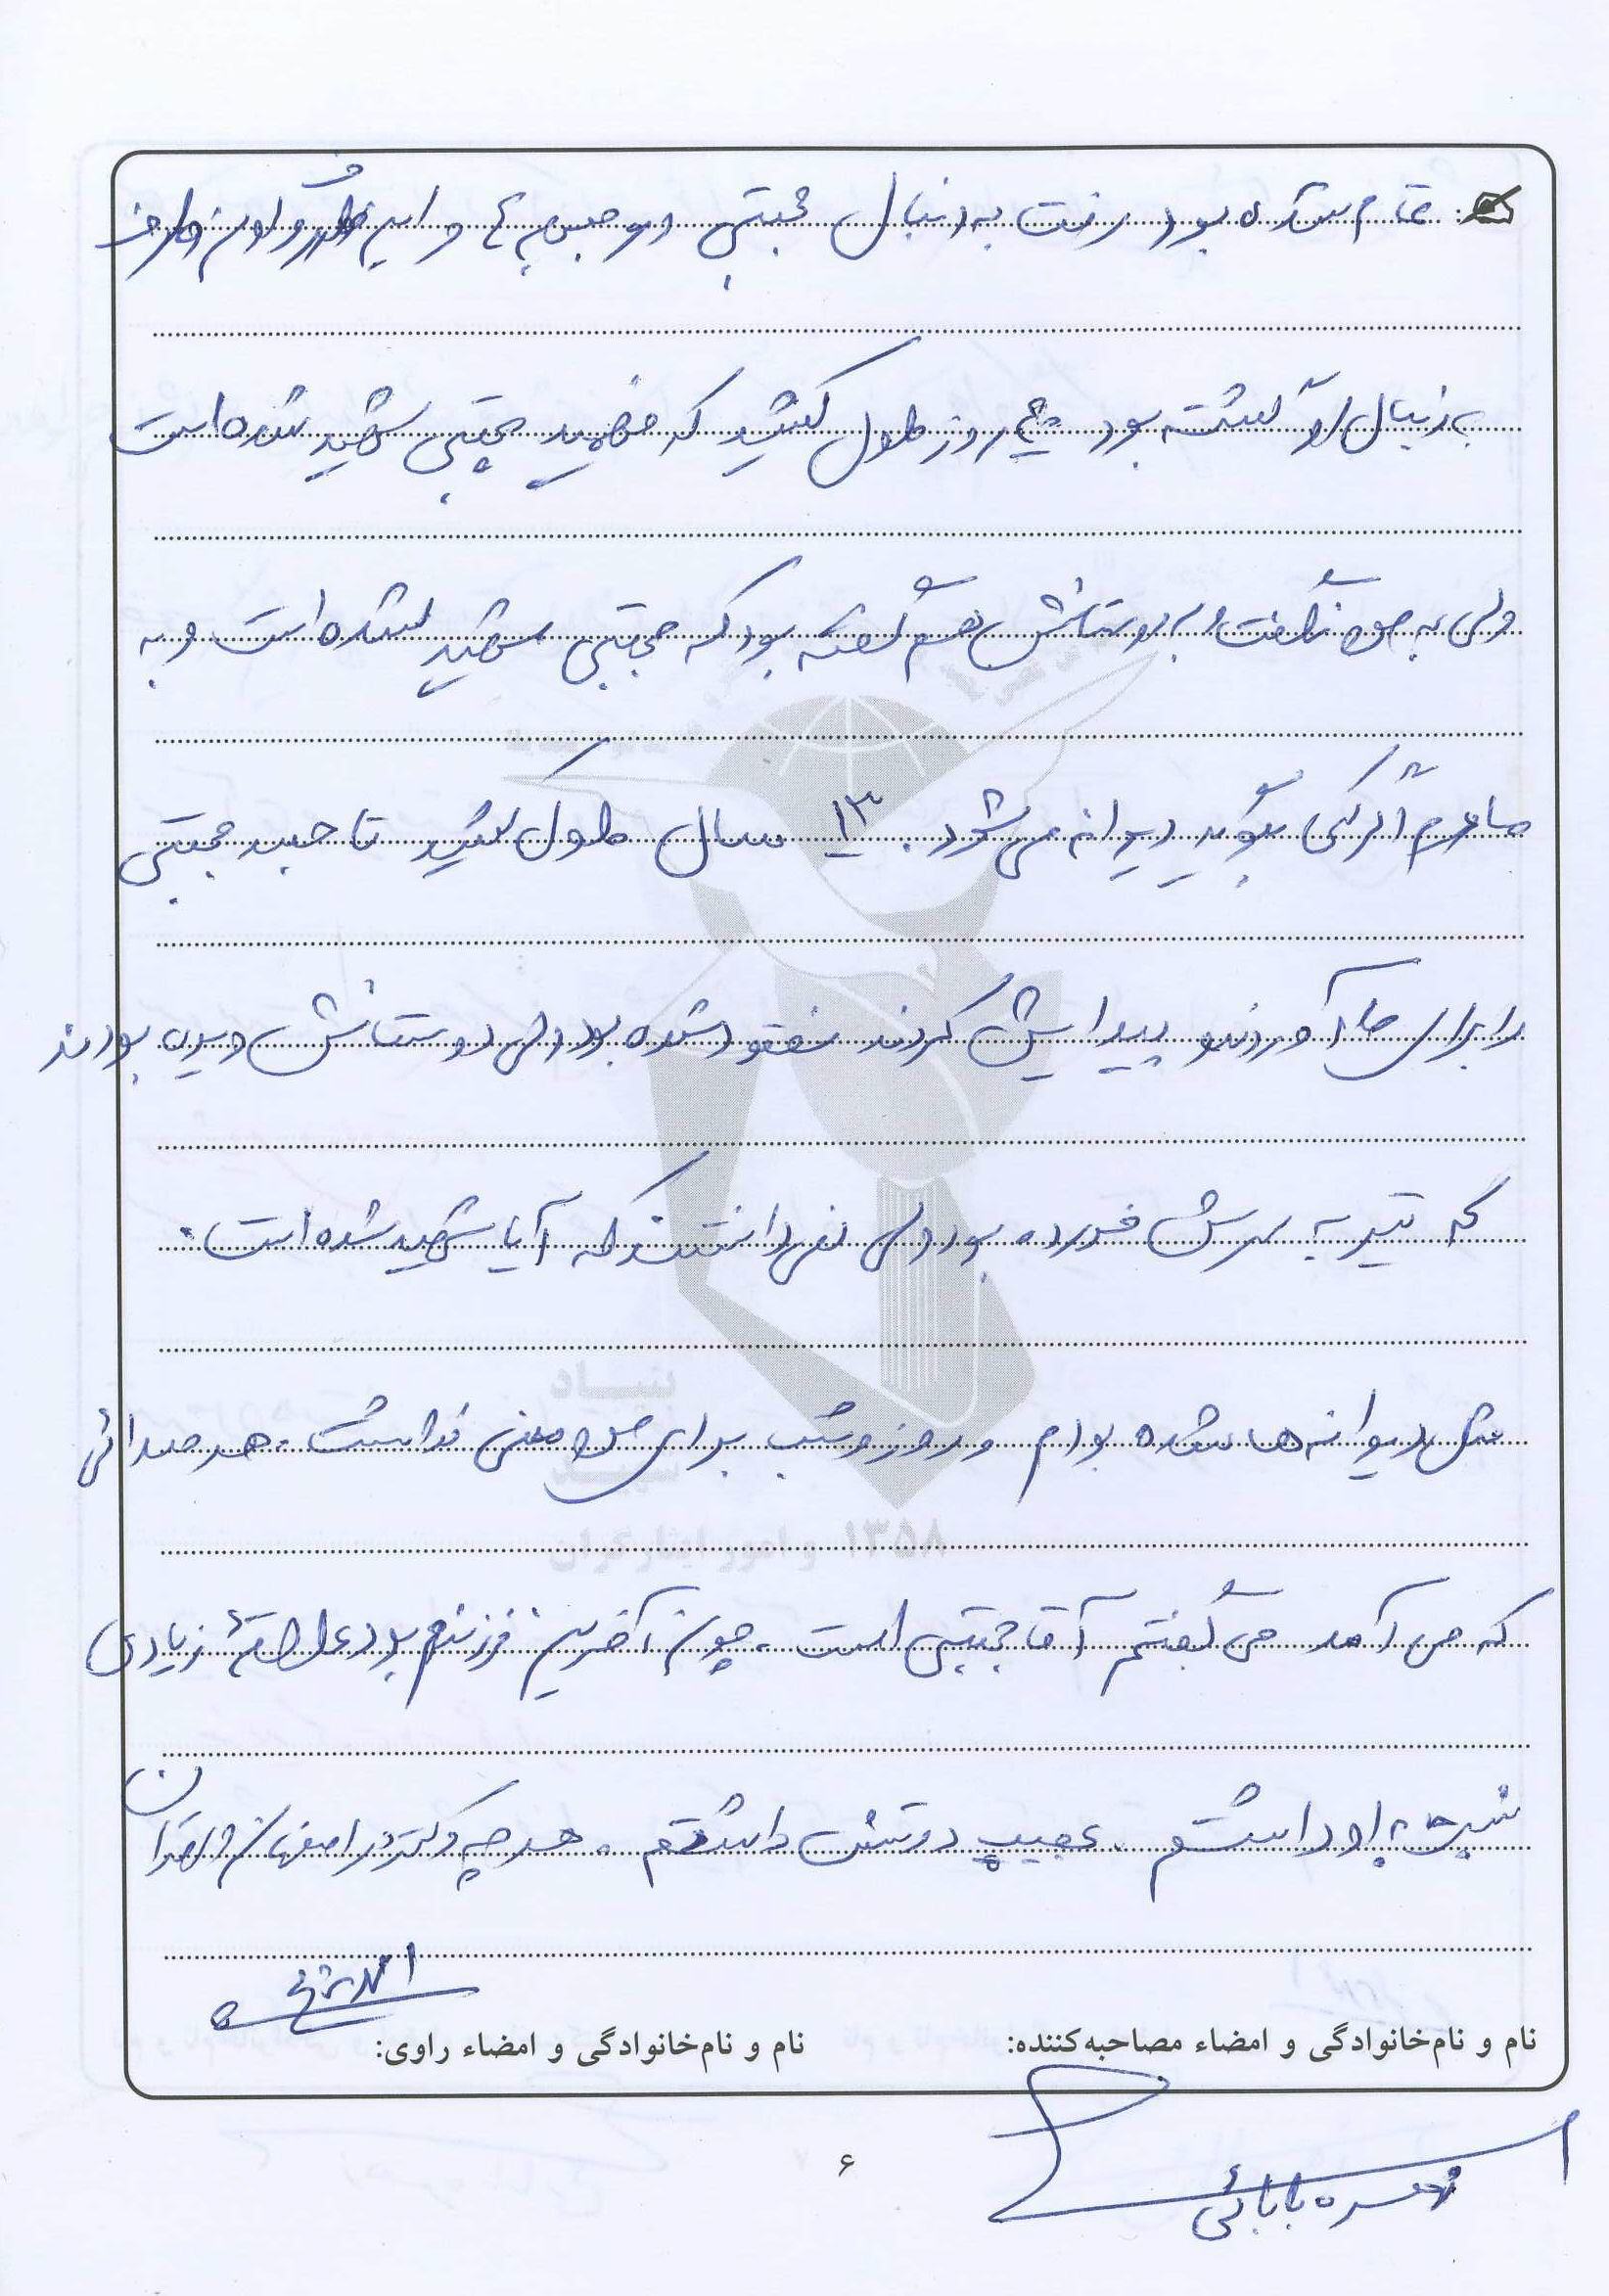 تمام شده بود رفت به دنبال مجتبی در جبهه و این طرف و اون طرف
به دنبال او گشته بود پنج روز طول کشید که فهمید مجتبی شهید شده است
ولی به من نگفت و به دوستانش هم گفته بود که مجتبی شهید شده است و به
مادرم اگر کسی بگوید دیوانه می شود. ۱۳ سال طول کشید تا جسد مجتبی
را برای ما آوردند و پیدایش کردند مفقود شده بود ولی دوستانش دیده بودند
که تیر به سرش خورده بود ولی نمی دانستند که آیا شهید شده است.
مثل دیوانه ها شده بودم و روز و شب برای من معنی نداشت. هر صدائی
که می آمد می گفتم آقا مجتبی است. چون آخرین فرزندم بود علاقهٔ زیادی
نسبت به او داشتم. عجیب دوستش داشتم. هر چه دکتر در اصفهان
نام و نام‌خانوادگی و امضاء مصاحبه‌کننده:
نام و نام‌خانوادگی و امضاء راوی:
بابائی
۶
بنیاد
شهید
و امور ایثارگران
۱۳۵۸